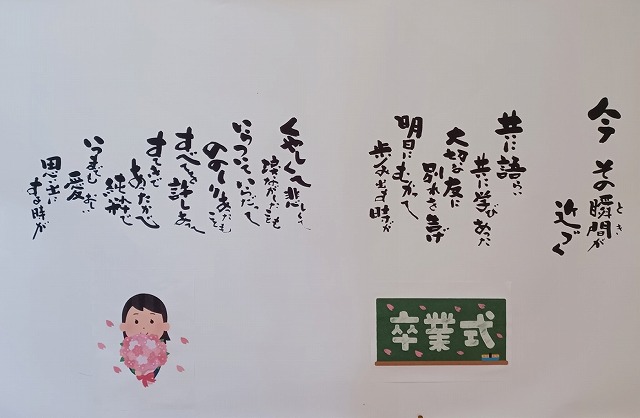 今 その瞬間が
とき
近づく
共に語らい
共に学びあった
大切な友に
別れを告げ
明日にむかって
歩み出す時が
くやしくて 悲しくて
涙ながしたことも
いらついて いらだって
ののしりあったことも
すべてを許しあって
すてきで
あたたかで
純粋で
いつまでも
愛おしい
思い出に
する時が
卒業式